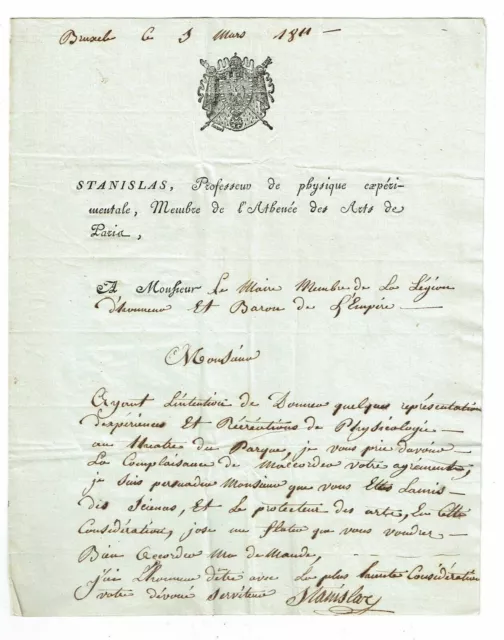 Bruxelle Ce 5 Mars 1811 —
STANISLAS, Professeur de physique expéri-
mentale, Membre de l'Athenée des Arts de
Paris,
A Monsieur Le Maire Membre de La Légion
d'honneur Et Baron de L'Empire —
Monsieur
Ayant L'intention de Donner quelques représentations
d'expériences Et Récréations de Physicologie —
au theatre du Parque, je vous prie d'avoir —
La Complaisance de M'accorder votre agrement,
je suis persuader Monsieur que vous Etes L'amis —
des Sciences, Et Le protecteur des arts, En Cette
Considération, jose me flater que vous voudrer —
Bien accorder Ma demande,
j'ai L'honneur d'être avec La plus haute Considération
votre dévoué serviteur Stanislas